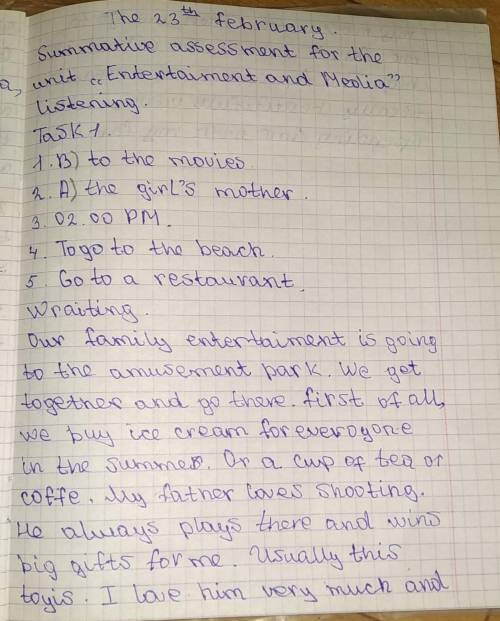 The 23th february.
Summative assessment for the
a, unit „Entertaiment and Media”
listening.
Task 1.
1. B) to the movies
2. A) the girl's mother.
3. 02.00 PM.
4. To go to the beach.
5. Go to a restaurant.
Wraiting.
Our family entertaiment is going
to the amusement park. We get
together and go there. first of all,
we buy ice cream for everyogone
in the summer. Or a cup of tea or
coffe. My father loves shooting.
He always plays there and wins
big gifts for me. Usually this
toyis. I love him very much and